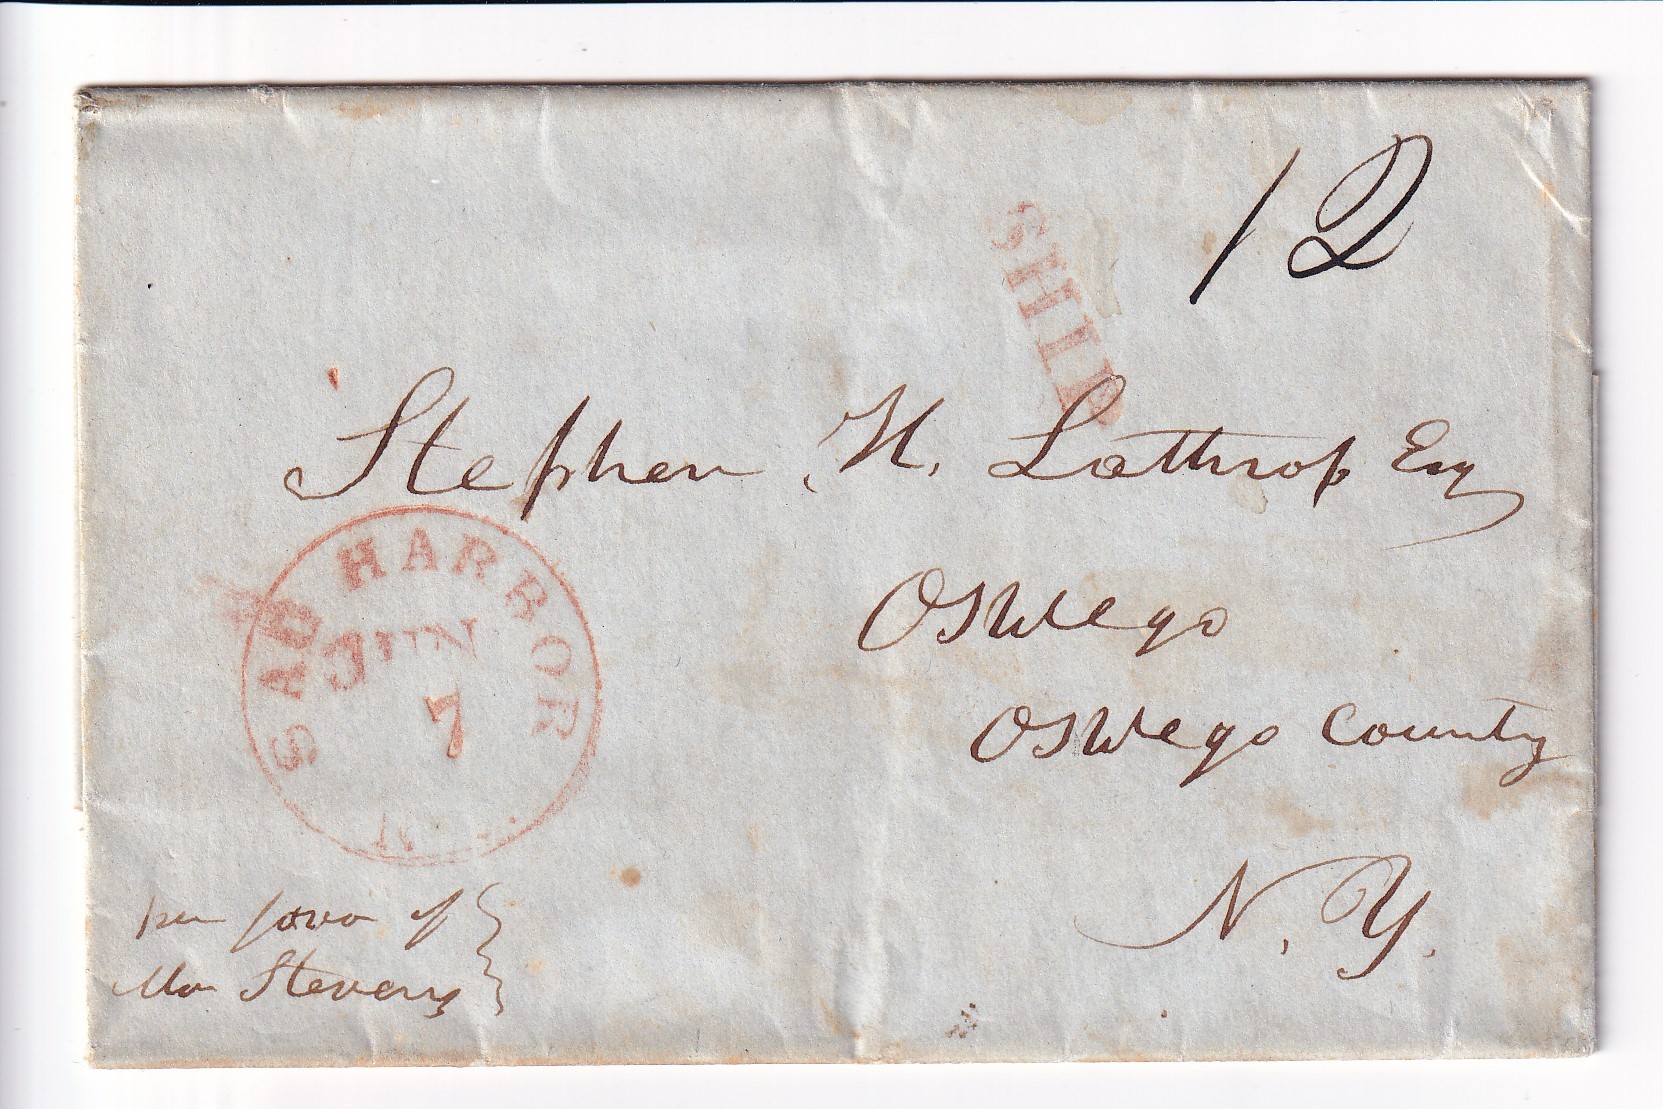 12
SHIP
Stephen H. Lathrop Esq
SAG HARBOR
JUN
7
N.
Oswego
Oswego County
N. Y.
per favor of
Mr Stevens